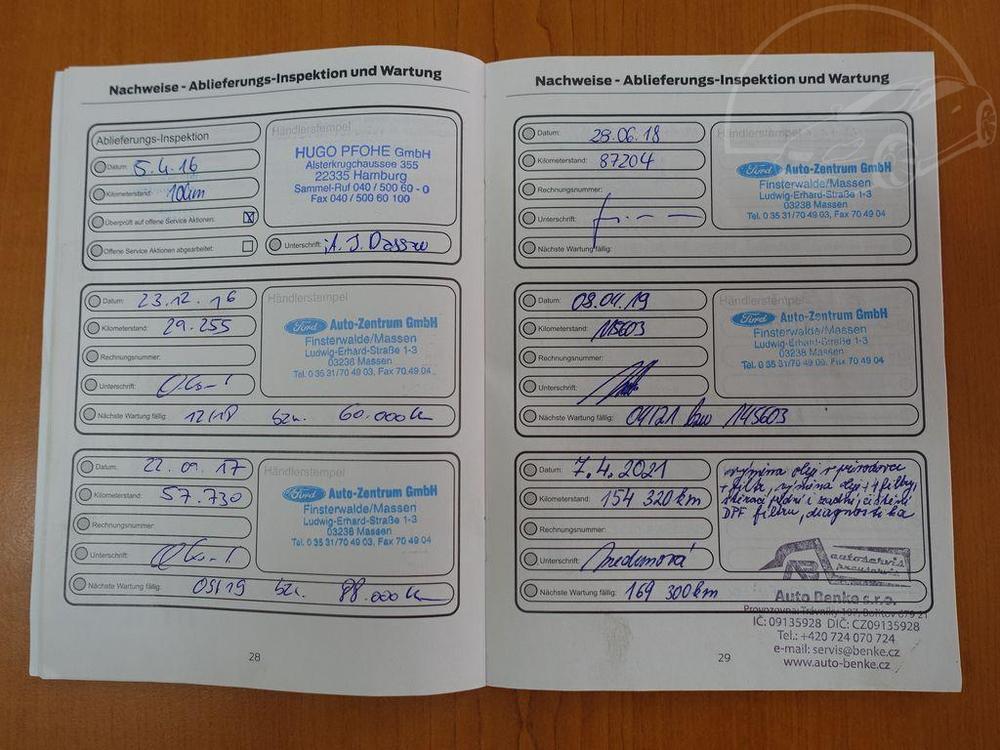 Nachweise - Ablieferungs-Inspektion und Wartung
Ablieferungs-Inspektion
Datum: 5.4.16
Kilometerstand: 10km
Überprüft auf offene Service Aktionen:
Offene Service Aktionen abgearbeitet:
Händlerstempel
HUGO PFOHE GmbH
Alsterkrugchaussee 355
22335 Hamburg
Sammel-Ruf 040 / 500 60 - 0
Fax 040 / 500 60 100
Unterschrift:
Datum: 23.12.16
Kilometerstand: 29.255
Rechnungsnummer:
Unterschrift:
Händlerstempel
Ford Auto-Zentrum GmbH
Finsterwalde/Massen
Ludwig-Erhard-Straße 1-3
03238 Massen
Tel. 0 35 31/70 49 03, Fax 70 49 04
Nächste Wartung fällig: 12/18 bzw. 60.000km
Datum: 22.09.17
Kilometerstand: 57.730
Rechnungsnummer:
Unterschrift:
Händlerstempel
Ford Auto-Zentrum GmbH
Finsterwalde/Massen
Ludwig-Erhard-Straße 1-3
03238 Massen
Tel. 0 35 31/70 49 03, Fax 70 49 04
Nächste Wartung fällig: 09/19 bzw. 88.000km
28
Nachweise - Ablieferungs-Inspektion und Wartung
Datum: 29.06.18
Kilometerstand: 87204
Rechnungsnummer:
Unterschrift:
Händlerstempel
Ford Auto-Zentrum GmbH
Finsterwalde/Massen
Ludwig-Erhard-Straße 1-3
03238 Massen
Tel. 0 35 31/70 49 03, Fax 70 49 04
Nächste Wartung fällig:
Datum: 09.04.19
Kilometerstand: 115603
Rechnungsnummer:
Unterschrift:
Händlerstempel
Ford Auto-Zentrum GmbH
Finsterwalde/Massen
Ludwig-Erhard-Straße 1-3
03238 Massen
Tel. 0 35 31/70 49 03, Fax 70 49 04
Nächste Wartung fällig: 04/21 bzw 145603
Datum: 7.4.2021
Kilometerstand: 154 320 km
Rechnungsnummer:
Unterschrift:
výmina olej v převodovce
+ filtr, výmina olej + 4 filtry,
stěrací přední i zadní, čištění
DPF filtru, diagnostika
autoservis
pneuservis
Nächste Wartung fällig: 169 300 km
Auto Benke s.r.o.
Provozovna: Trávníky 107, 679 21
IČ: 09135928 DIČ: CZ09135928
Tel.: +420 724 070 724
e-mail: servis@benke.cz
www.auto-benke.cz
29